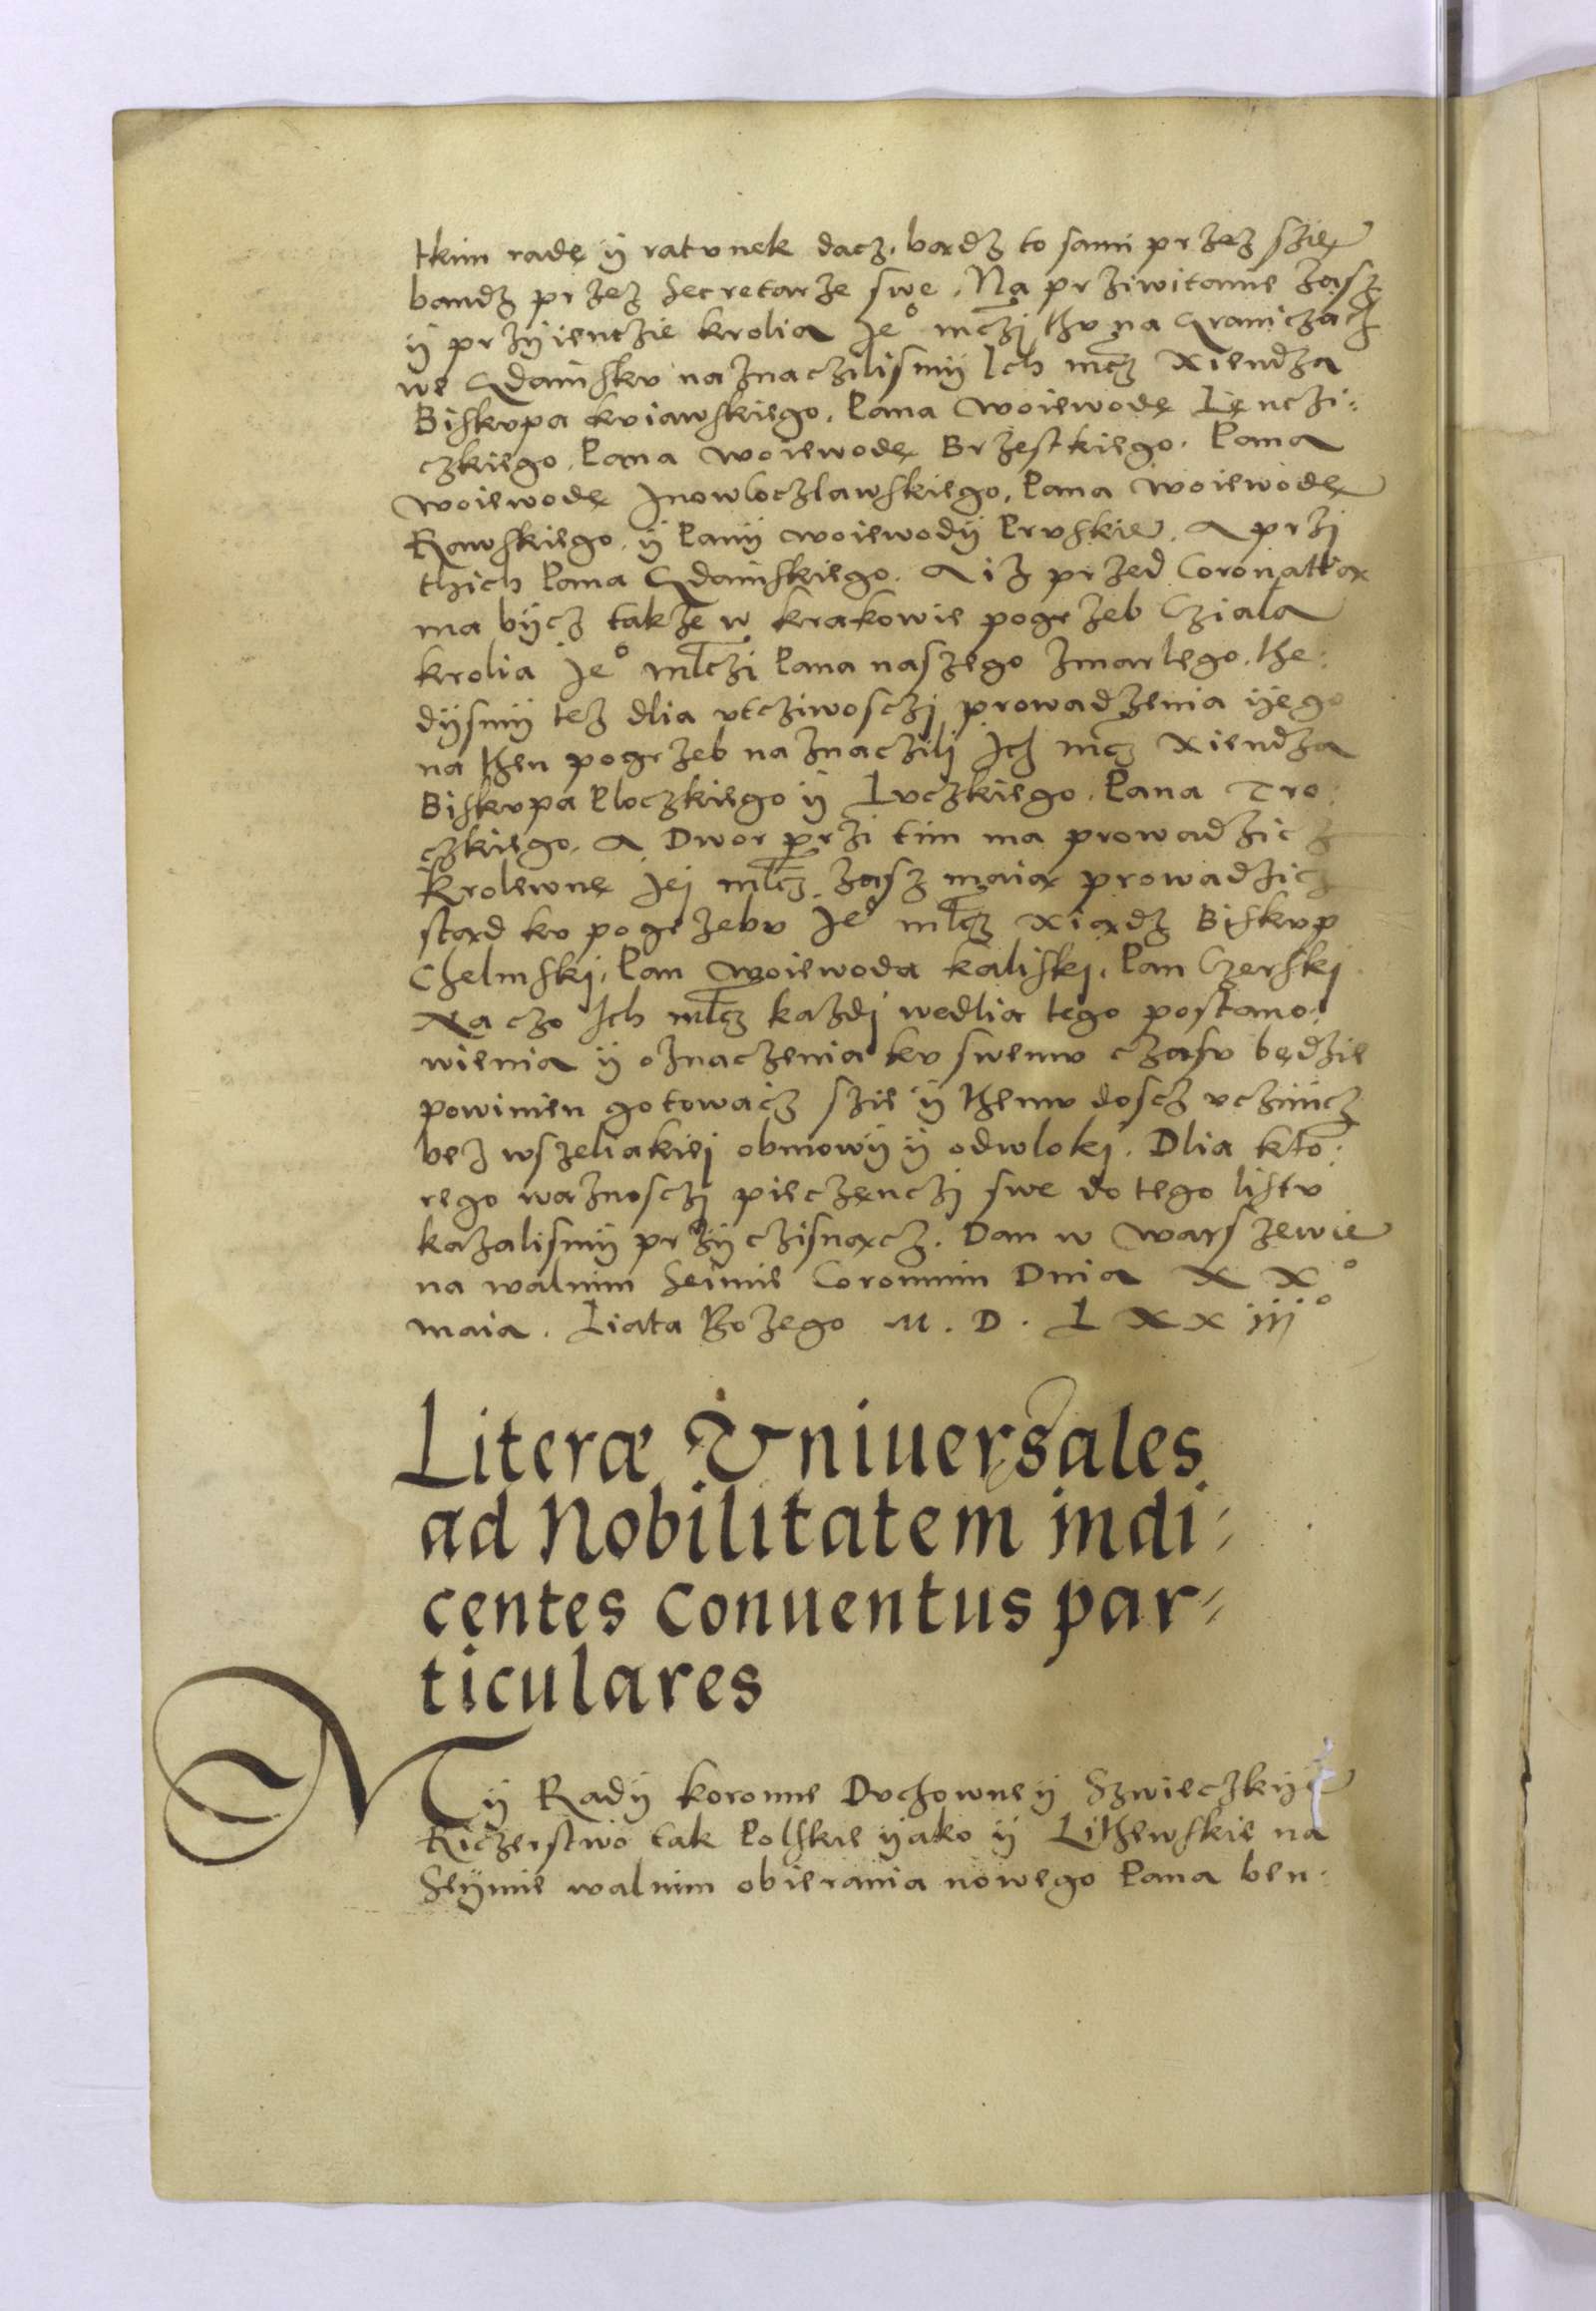 tkim radę ÿ ratvnek dacz, bądz to sami przez szię
bandz przez Secretarze swe. Na prziwitanie zasz
ÿ przÿienczie krolia Je° mczi thv na Graniczach
we Gdainskv naznaczilismÿ Ich mcz Xiendza
Biskvpa kviawskiego, Pana Woiewodę Lęnczi:
czkiego, Pana woiewodę Brzestkiego. Pana
woiewodę Inowloczlawskiego, Pana Woiewodę
Rawskiego, ÿ Panÿ woiewodÿ Prvskie. A przi
thich Pana Gdainskiego. A iz przed Coronattią
ma bÿcz takze w krakowie pogrzeb Cziala
krolia Je° mlczi Pana naszego zmarlego, the:
dÿsmÿ tez dlia vtcziwosczi prowadzenia ÿego
na then pogrzeb naznaczili Ich mcz Xiendza
Biskvpa Ploczkiego ÿ Lvczkiego. Pana Tro:
czkiego. A Dwor przi tim ma prowadzicz
krolewnę Jei mlcz. zasz maią prowadzicz
stąd kv pogrzebv Je° mlcz Xiądz Biskvp
Chelmski, Pan Woiewoda kaliski, Pan Czerski
Na czo Ich mlcz kazdi wedlia tego postano:
wienia ÿ oznaczenia kv swemv czasv będzie
powinien gotowacz szie ÿ themv doscz vczinicz
bez wszeliakiei obmowÿ ÿ odwloki. Dlia kto:
rego waznosczi pieczęnczi swe do tego listv
kazalismÿ przÿczisnącz. Dan w Warszewie
na walnim Seimie Coronnim Dnia X X°
maia. Liata Bozego M. D. L X X iij°
Literæ Vniuersales
ad Nobilitatem indi:
centes Conuentus par:
ticulares
Mÿ Radÿ koronne Dvchowne ÿ Szwieczkÿe
Riczerstwo tak Polskie ÿako ÿ Lithewskie na
Seÿmie walnim obierania nowego Pana ben: